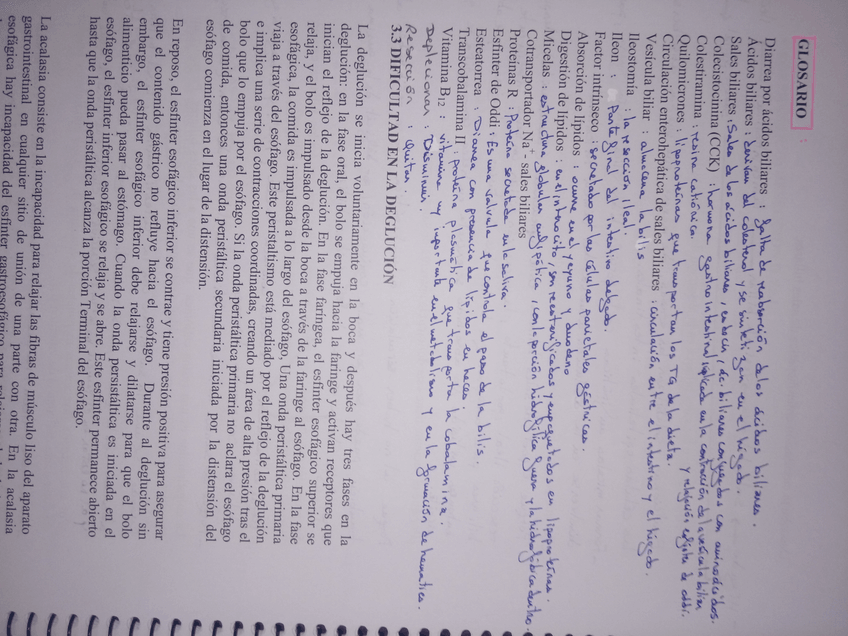 GLOSARIO :
Diarrea por ácidos biliares : falta de reabsorción de los ácidos biliares.
Ácidos biliares : derivan del colesterol y se sintetizan en el hígado.
Sales biliares : Sales de los ácidos biliares, conjugados con aminoácidos.
Colecistocinina (CCK) : hormona gastrointestinal implicada en la contracción de la vesícula biliar y relajación esfínter de oddi.
Colestiramina : resina catiónica
Quilomicrones : lipoproteínas que transportan los TG de la dieta.
Circulación enterohepática de sales biliares : circulación entre el intestino y el hígado.
Vesícula biliar : almacena la bilis
Ileostomía : la resección ileal.
Ileon : Parte final del intestino delgado.
Factor intrínseco : secretado por las células parietales gástricas.
Absorción de lípidos : ocurre en el yeyuno y duodeno
Digestión de lípidos : en el enterocito, son reesterificados y empaquetados en lipoproteínas.
Micelas : estructura globular anfipática, con la porción hidrofílica fuera y la hidrofóbica dentro.
Cotransportador Na+ - sales biliares
Proteínas R : Proteína secretada en la saliva.
Esfínter de Oddi : Es una válvula que controla el paso de la bilis.
Esteatorrea : Diarrea con presencia de lípidos en heces.
Transcobalamina II : proteína plasmática que transporta la cobalamina.
Vitamina B12 : vitamina muy importante en el metabolismo y en la formación de hematíes.
Deplecionar : Disminuir.
Resección : Quitar.
3.3 DIFICULTAD EN LA DEGLUCIÓN
La deglución se inicia voluntariamente en la boca y después hay tres fases en la
deglución: en la fase oral, el bolo se empuja hacia la faringe y activan receptores que
inician el reflejo de la deglución. En la fase faríngea, el esfínter esofágico superior se
relaja, y el bolo es impulsado desde la boca a través de la faringe al esófago. En la fase
esofágica, la comida es impulsada a lo largo del esófago. Una onda peristáltica primaria
viaja a través del esófago. Este peristaltismo está mediado por el reflejo de la deglución
e implica una serie de contracciones coordinadas, creando un área de alta presión tras el
bolo que lo empuja por el esófago. Si la onda peristáltica primaria no aclara el esófago
de comida, entonces una onda peristáltica secundaria iniciada por la distensión del
esófago comienza en el lugar de la distensión.
En reposo, el esfínter esofágico inferior se contrae y tiene presión positiva para asegurar
que el contenido gástrico no refluye hacia el esófago. Durante al deglución sin
embargo, el esfínter esofágico inferior debe relajarse y dilatarse para que el bolo
alimenticio pueda pasar al estómago. Cuando la onda persistáltica es iniciada en el
esófago, el esfínter inferior esofágico se relaja y se abre. Este esfínter permanece abierto
hasta que la onda peristáltica alcanza la porción Terminal del esófago.
La acalasia consiste en la incapacidad para relajar las fibras de músculo liso del aparato
gastrointestinal en cualquier sitio de unión de una parte con otra. En la acalasia
esofágica hay incapacidad del esfínter gastroesofágico para relajarse